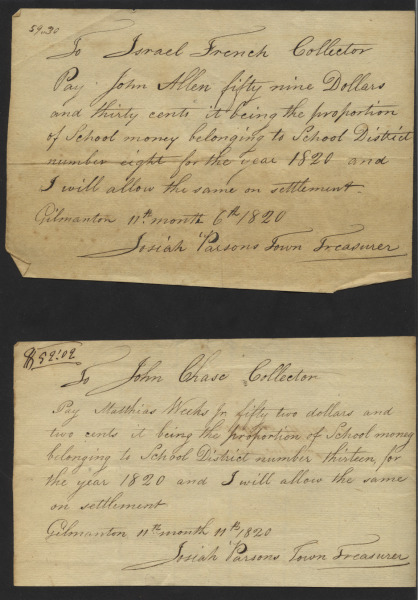 59.30
To Israel French Collector
Pay John Allen fifty nine Dollars
and thirty cents it being the proportion
of School money belonging to School District
number eight for the year 1820 and
I will allow the same on settlement.
Gilmanton 11th month 6th 1820
Josiah Parsons Town Treasurer
$52.02
To John Chase Collector
Pay Matthias Weeks Jr fifty two dollars and
two cents it being the proportion of School money
belonging to School District number thirteen for
the year 1820 and I will allow the same
on settlement
Gilmanton 11th month 11th 1820
Josiah Parsons Town Treasurer